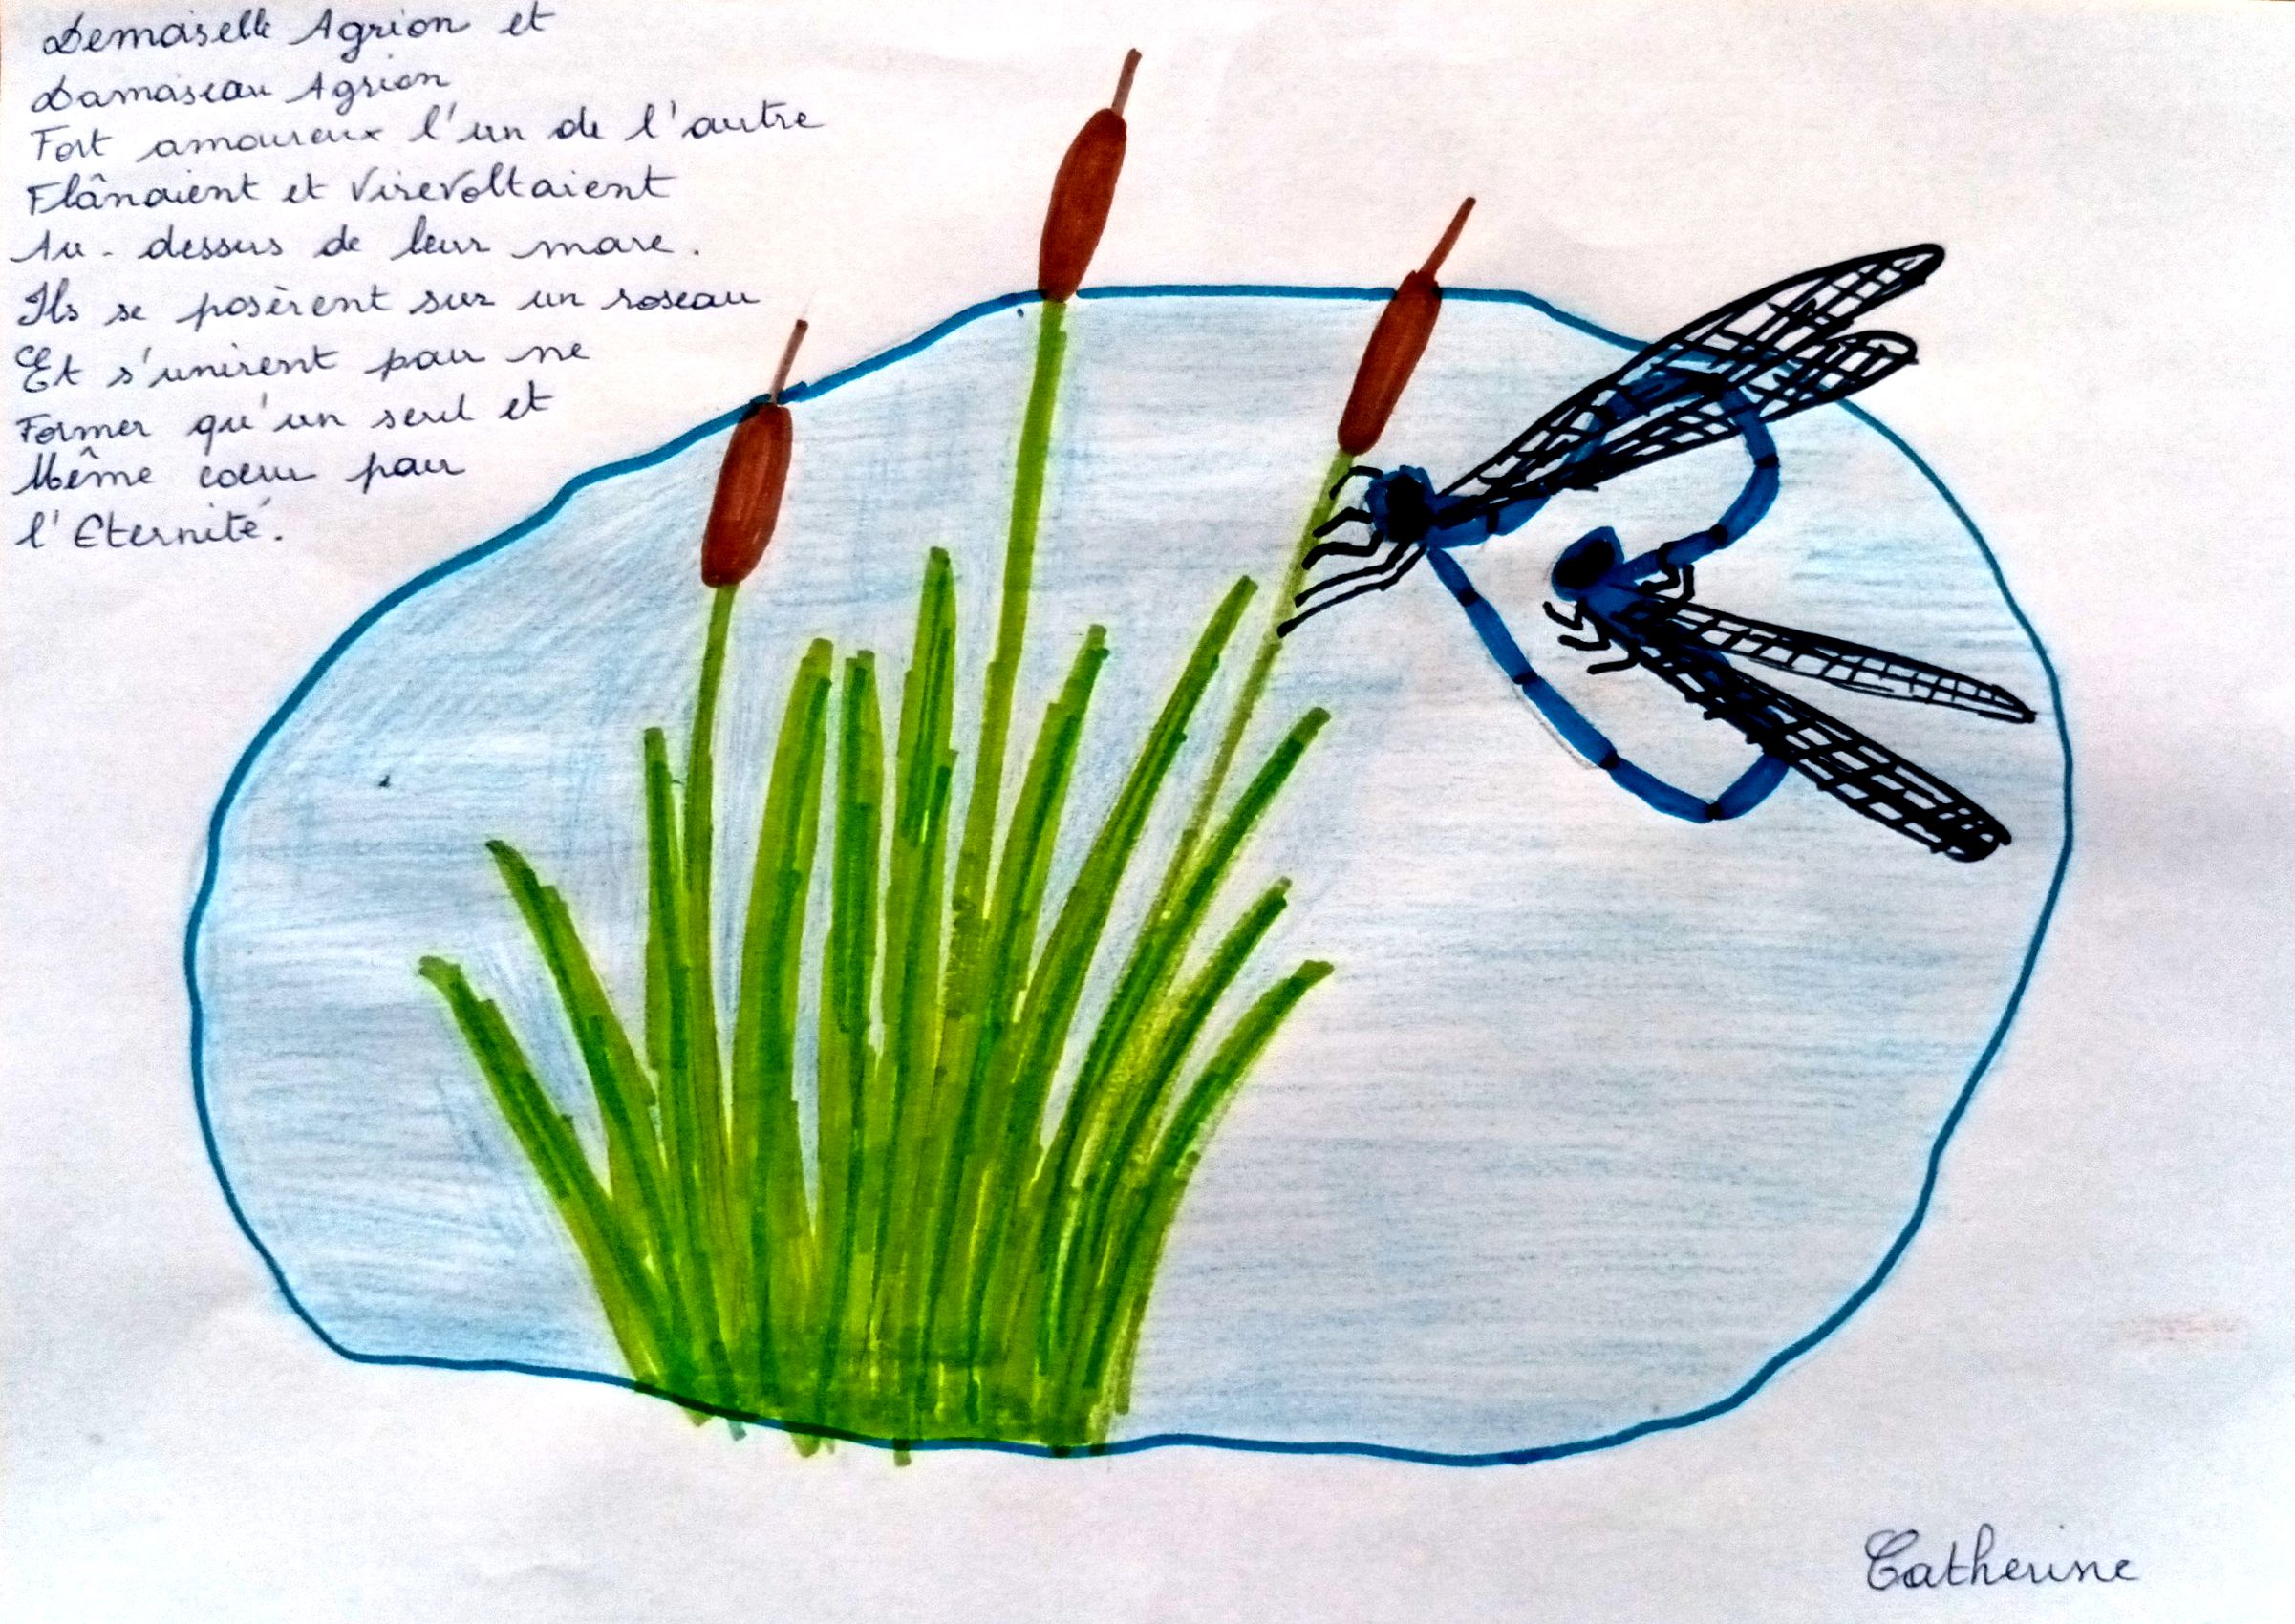 Demoiselle Agrion et
Damoiseau Agrion
Fort amoureux l'un de l'autre
Flânaient et Virevoltaient
Au-dessus de leur mare.
Ils se posèrent sur un roseau
Et s'unirent pour ne
Former qu'un seul et
Même coeur pour
l'Eternité.
Catherine